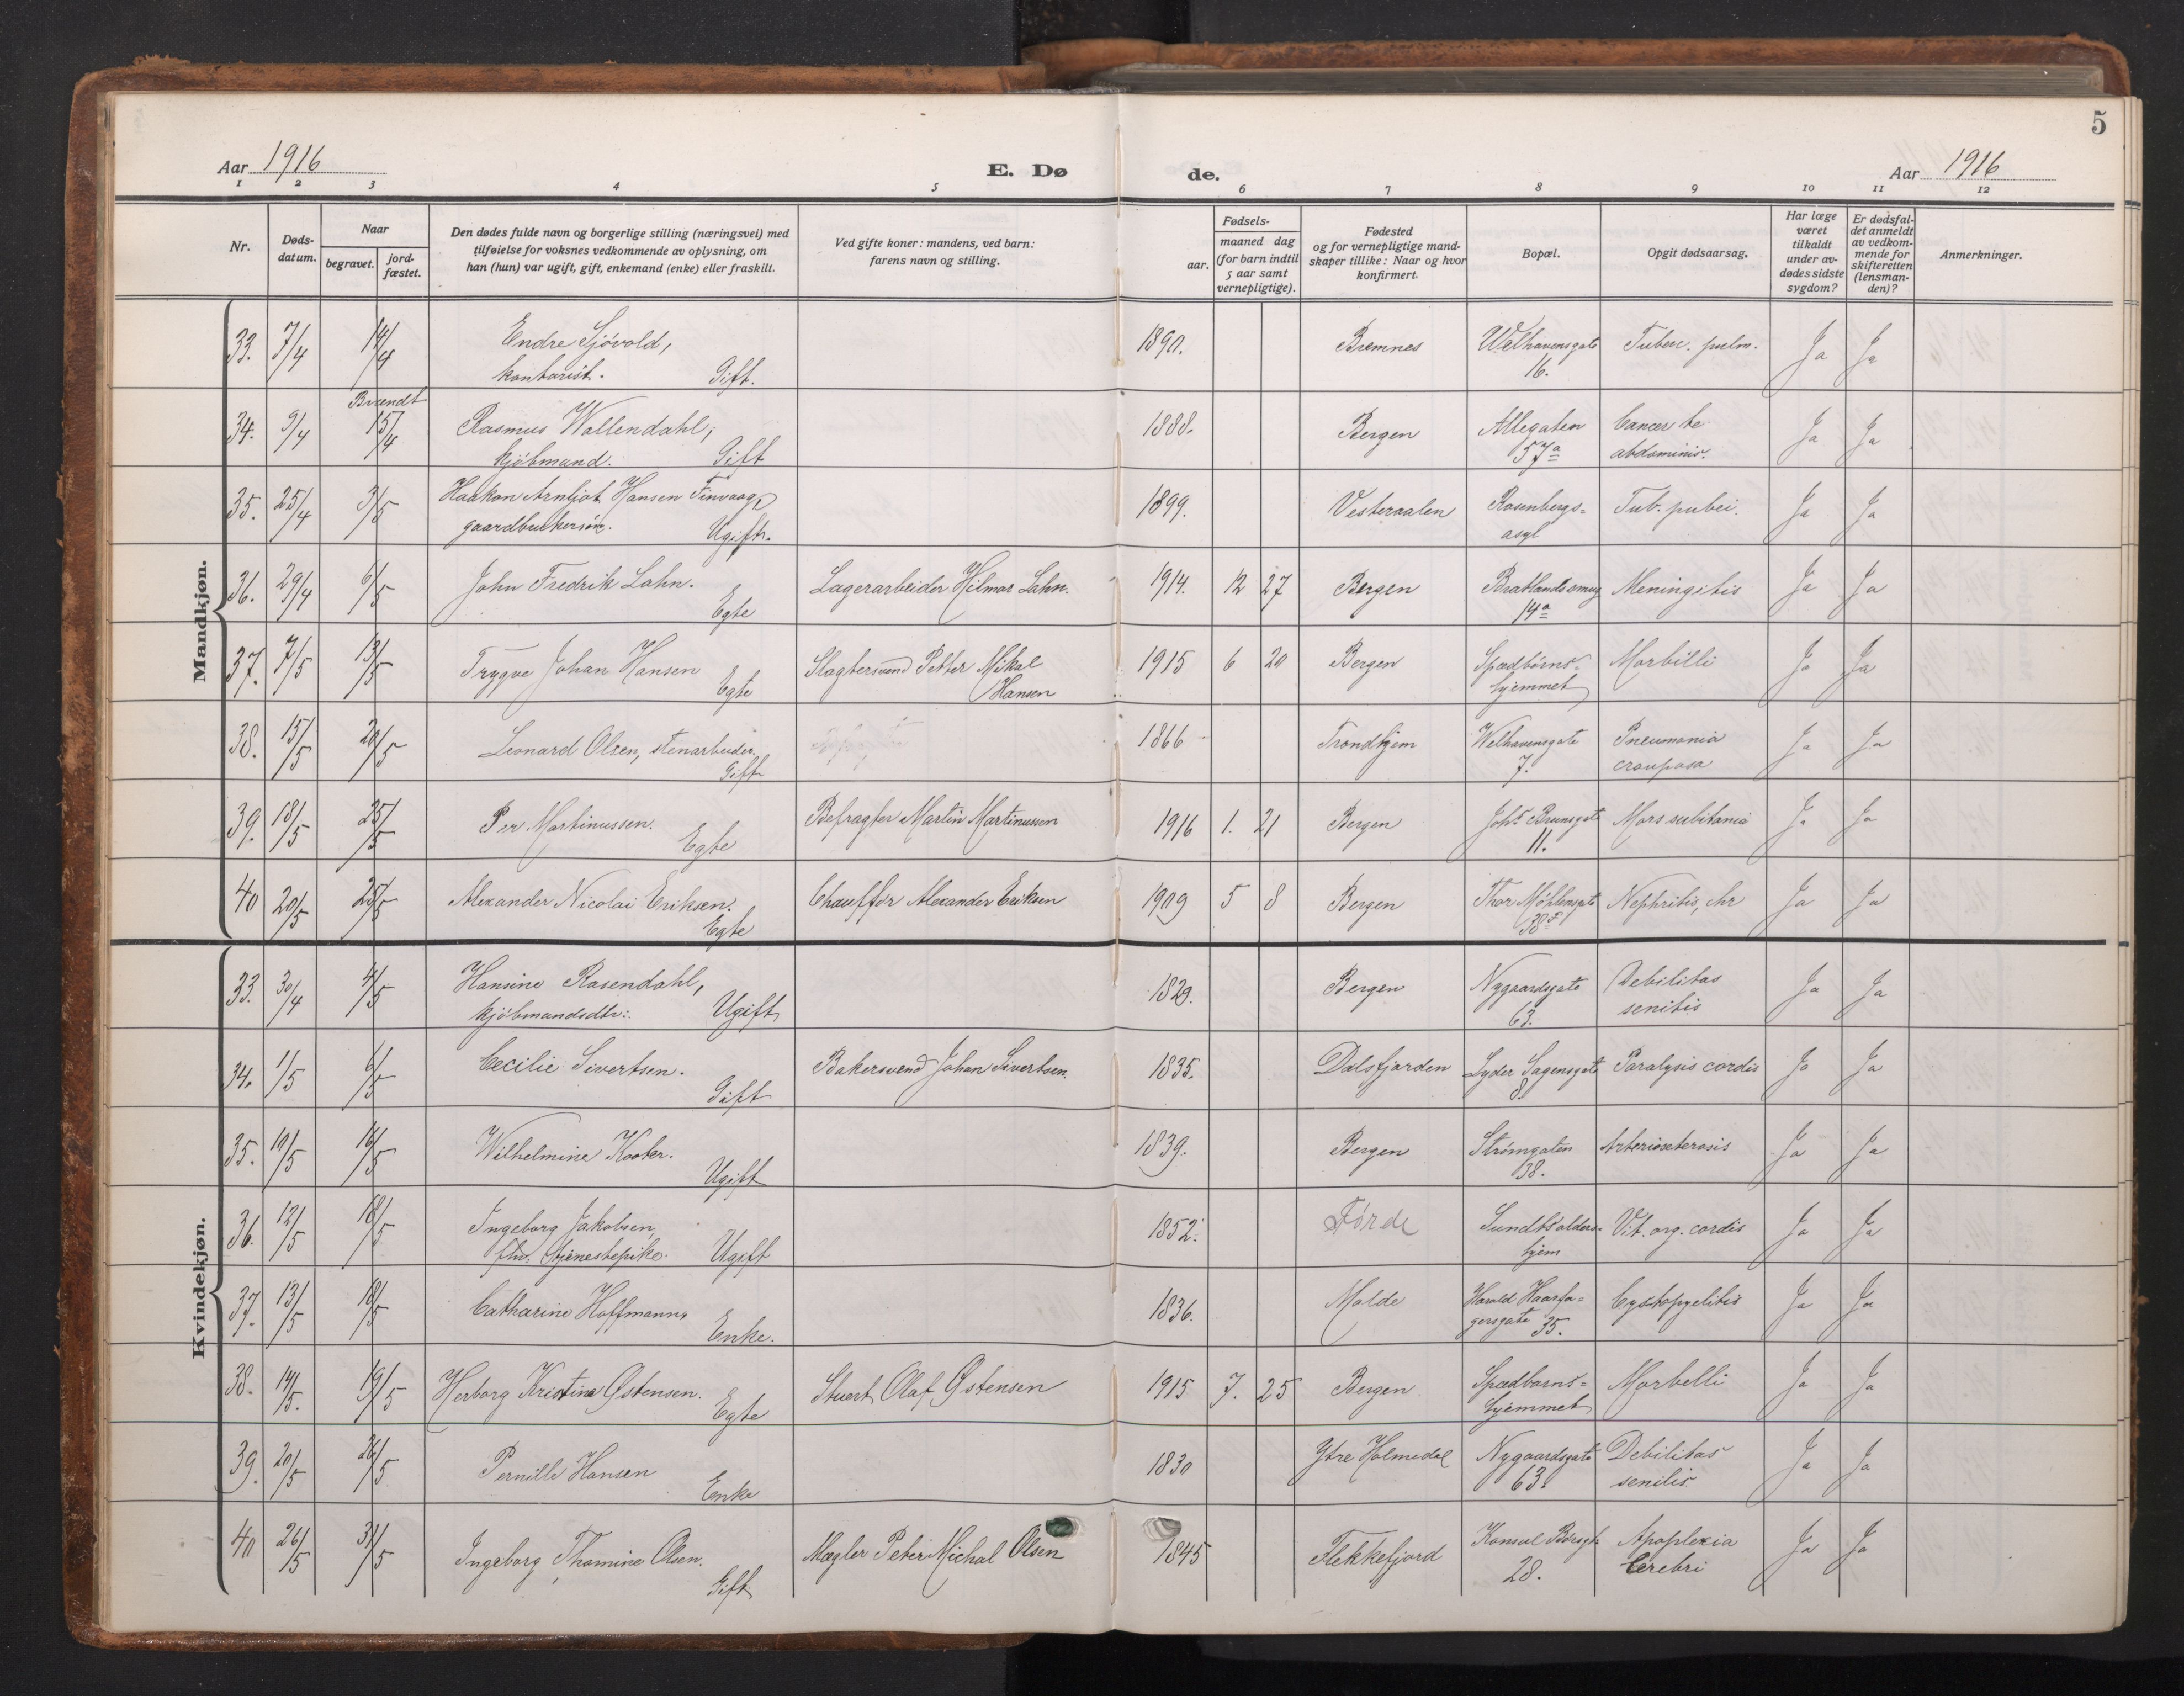 5
Aar 1916
E. Dø
de.
Aar 1916
1 2 3 4 5 6 7 8 9 10 11 12
Nr.
Døds-
datum.
Naar
begravet.
jord-
fæstet.
Den dødes fulde navn og borgerlige stilling (næringsvei) med
tilføielse for voksnes vedkommende av oplysning, om
han (hun) var ugift, gift, enkemand (enke) eller fraskilt.
Ved gifte koner: mandens, ved barn:
farens navn og stilling.
Fødsels-
aar.
maaned dag
(for barn indtil
5 aar samt
vernepligtige).
Fødested
og for vernepligtige mand-
skaper tillike: Naar og hvor
konfirmert.
Bopæl.
Opgit dødsaarsag.
Har læge
været
tilkaldt
under av-
dødes sidste
sygdom?
Er dødsfal-
det anmeldt
av vedkom-
mende for
skifteretten
(lensman-
den)?
Anmerkninger.
Mandkjøn.
33. 7/4 14/4 Endre Sjøvold, 1890. Bremnes Welhavensgate Tuberc. pulm. Ja Ja
kontorist. Gift. 16.
Brændt
34. 9/4 15/4 Rasmus Wallendahl, 1888. Bergen Allegaten Cancer te Ja Ja
kjøbmand. Gift 57a abdominis.
35. 25/4 3/5 Haakon Arnljot Hansen Finvaag, 1899. Vesteraalen Rosenbergs- Tub. pubei. Ja Ja
gaardbrukersøn. Ugift. asyl
36. 29/4 6/5 John Fredrik Lahn. Lagerarbeider Hilmar Lahn. 1914. 12 27 Bergen Bratlandsmug Meningitis Ja Ja
Egte 14a
37. 7/5 13/5 Trygve Johan Hansen Slagtersvend Petter Mikal 1915 6 20 Bergen Spædbarns- Morbilli Ja Ja
Egte Hansen hjemmet
38. 15/5 20/5 Leonard Olsen, stenarbeider, 1866 Trondhjem Welhavensgate Pneumonia Ja Ja
Gift 7. crouposa
39. 18/5 25/5 Per Martinussen. Befragter Martin Martinussen 1916 1. 21 Bergen Johs. Brunsgate Mors subitania Ja Ja
Egte 11.
40 20/5 25/5 Alexander Nicolai Eriksen. Chauffør Alexander Eriksen 1909 5 8 Bergen Thor Møhlensgate Nephritis, chr Ja Ja
Egte
Kvindekjøn.
33. 30/4 4/5 Hansine Rosendahl, 1829. Bergen Nygaardsgate Debilitas Ja Ja
kjøbmandsdtr: Ugift 63. senitis
34. 1/5 6/5 Cecilie Sivertsen. Bakersvend Johan Sivertsen. 1835. Dalsfjorden Lyder Sagensgate Paralysis cordis Ja Ja
Gift 8.
35. 10/5 16/5 Wilhelmine Koster. 1839. Bergen Strømgaten Arteriosclerosis Ja Ja
Ugift 38.
36. 12/5 18/5 Ingeborg Jakobsen, 1852. Førde Sundts alders- Vit. org. cordis Ja Ja
fhv. tjenestepike. Ugift hjem
37. 13/5 18/5 Catharine Hoffmann, 1836. Molde Harald Haarfa- Cystopyelitis Ja Ja
Enke. gersgate 35.
38. 14/5. 19/5 Herborg Kristine Østensen. Stuert Olaf Østensen 1915 7. 25 Bergen Spædbarns- Morbelli Ja Ja
Egte hjemmet
39. 20/5 26/5 Pernille Hansen 1830 Ytre Holmedal Nygaardsgate Debilitas Ja Ja
Enke 63. senilis
40 26/5 31/5 Ingeborg Thomine Olsen. Mægler Peter Michal Olsen 1845 Flekkefjord Konsul Børsgt. Apoplexia Ja Ja
Gift 28. Cerebri